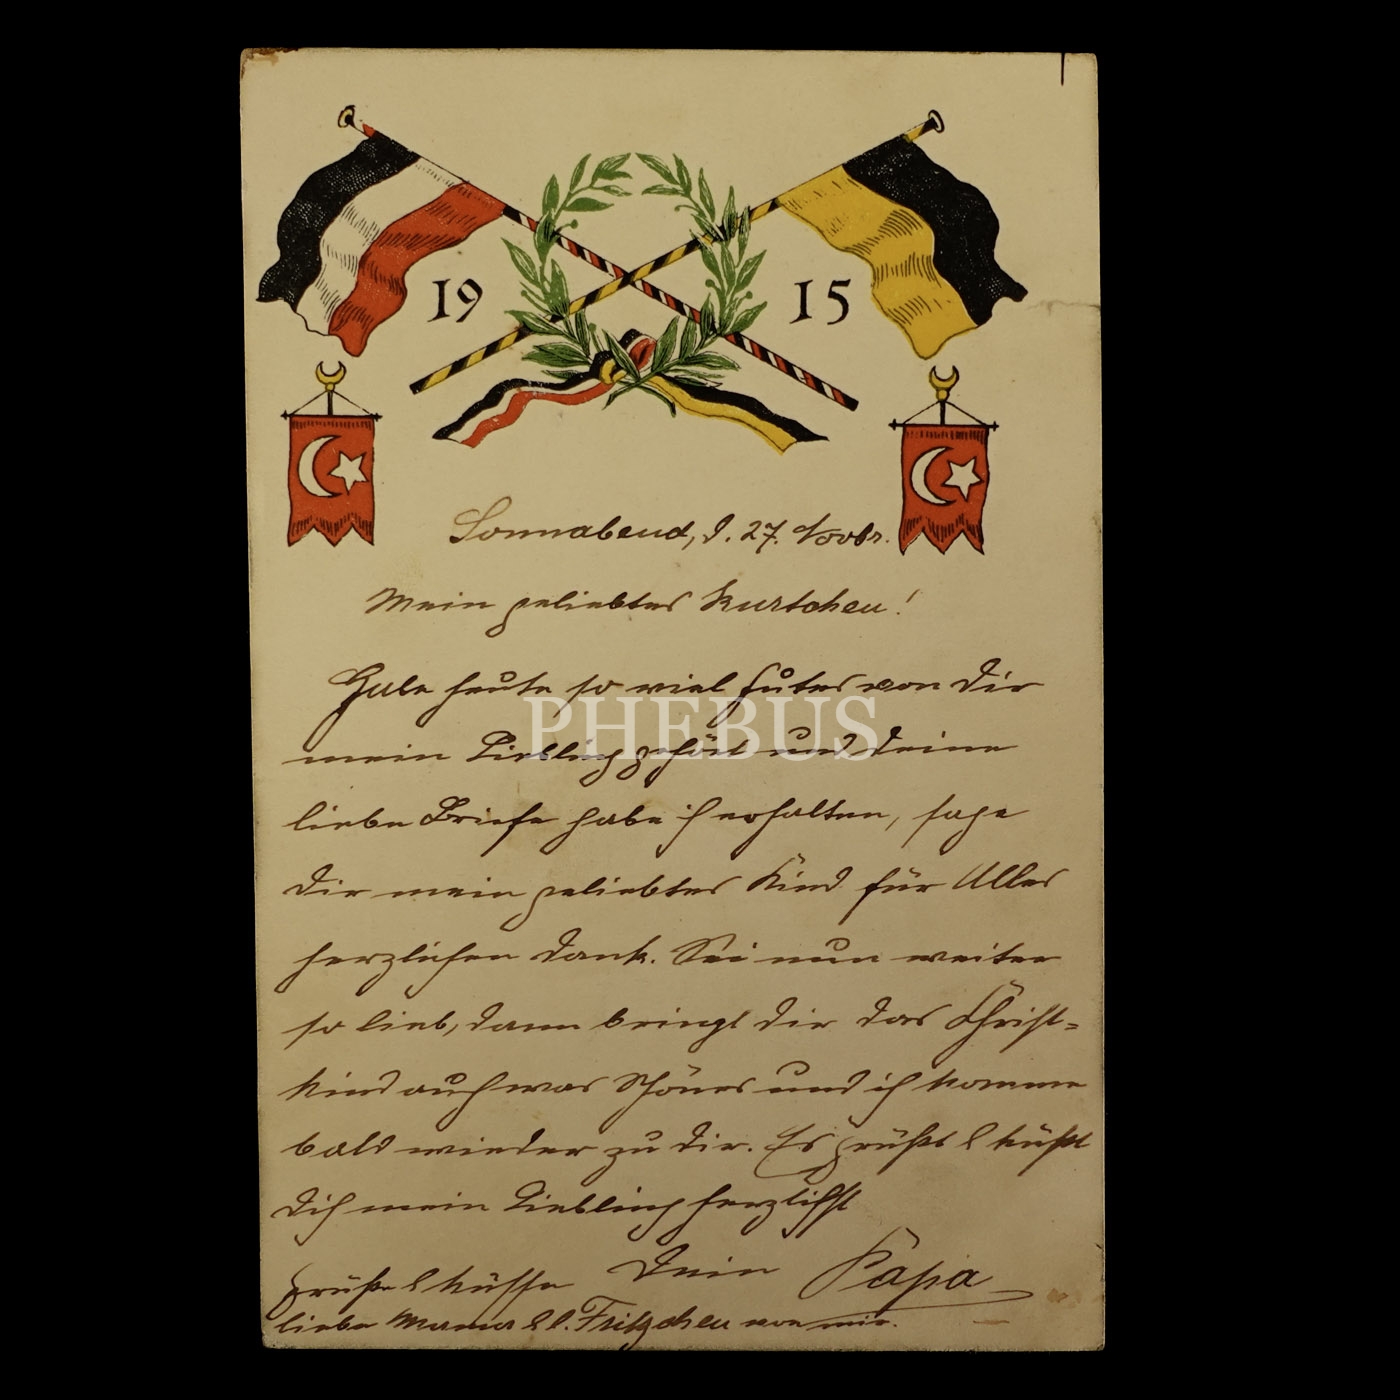 19 15
Sonnabend, d. 27. Novbr.
Mein geliebtes Kurtchen!
Habe heute so viel Gutes von Dir
mein Liebling gehört und Deine
lieben Briefe habe ich erhalten, sage
Dir mein geliebtes Kind für Alles
herzlichen Dank. Sei nun weiter
so lieb, dann bringt Dir das Christ=
kind auch was Schönes und ich komme
bald wieder zu Dir. Es grüßt & küßt
Dich mein Liebling herzlichst
Dein Papa
Grüße & küsse
liebe Mama & l. Fritzchen von mir.
PHEBUS